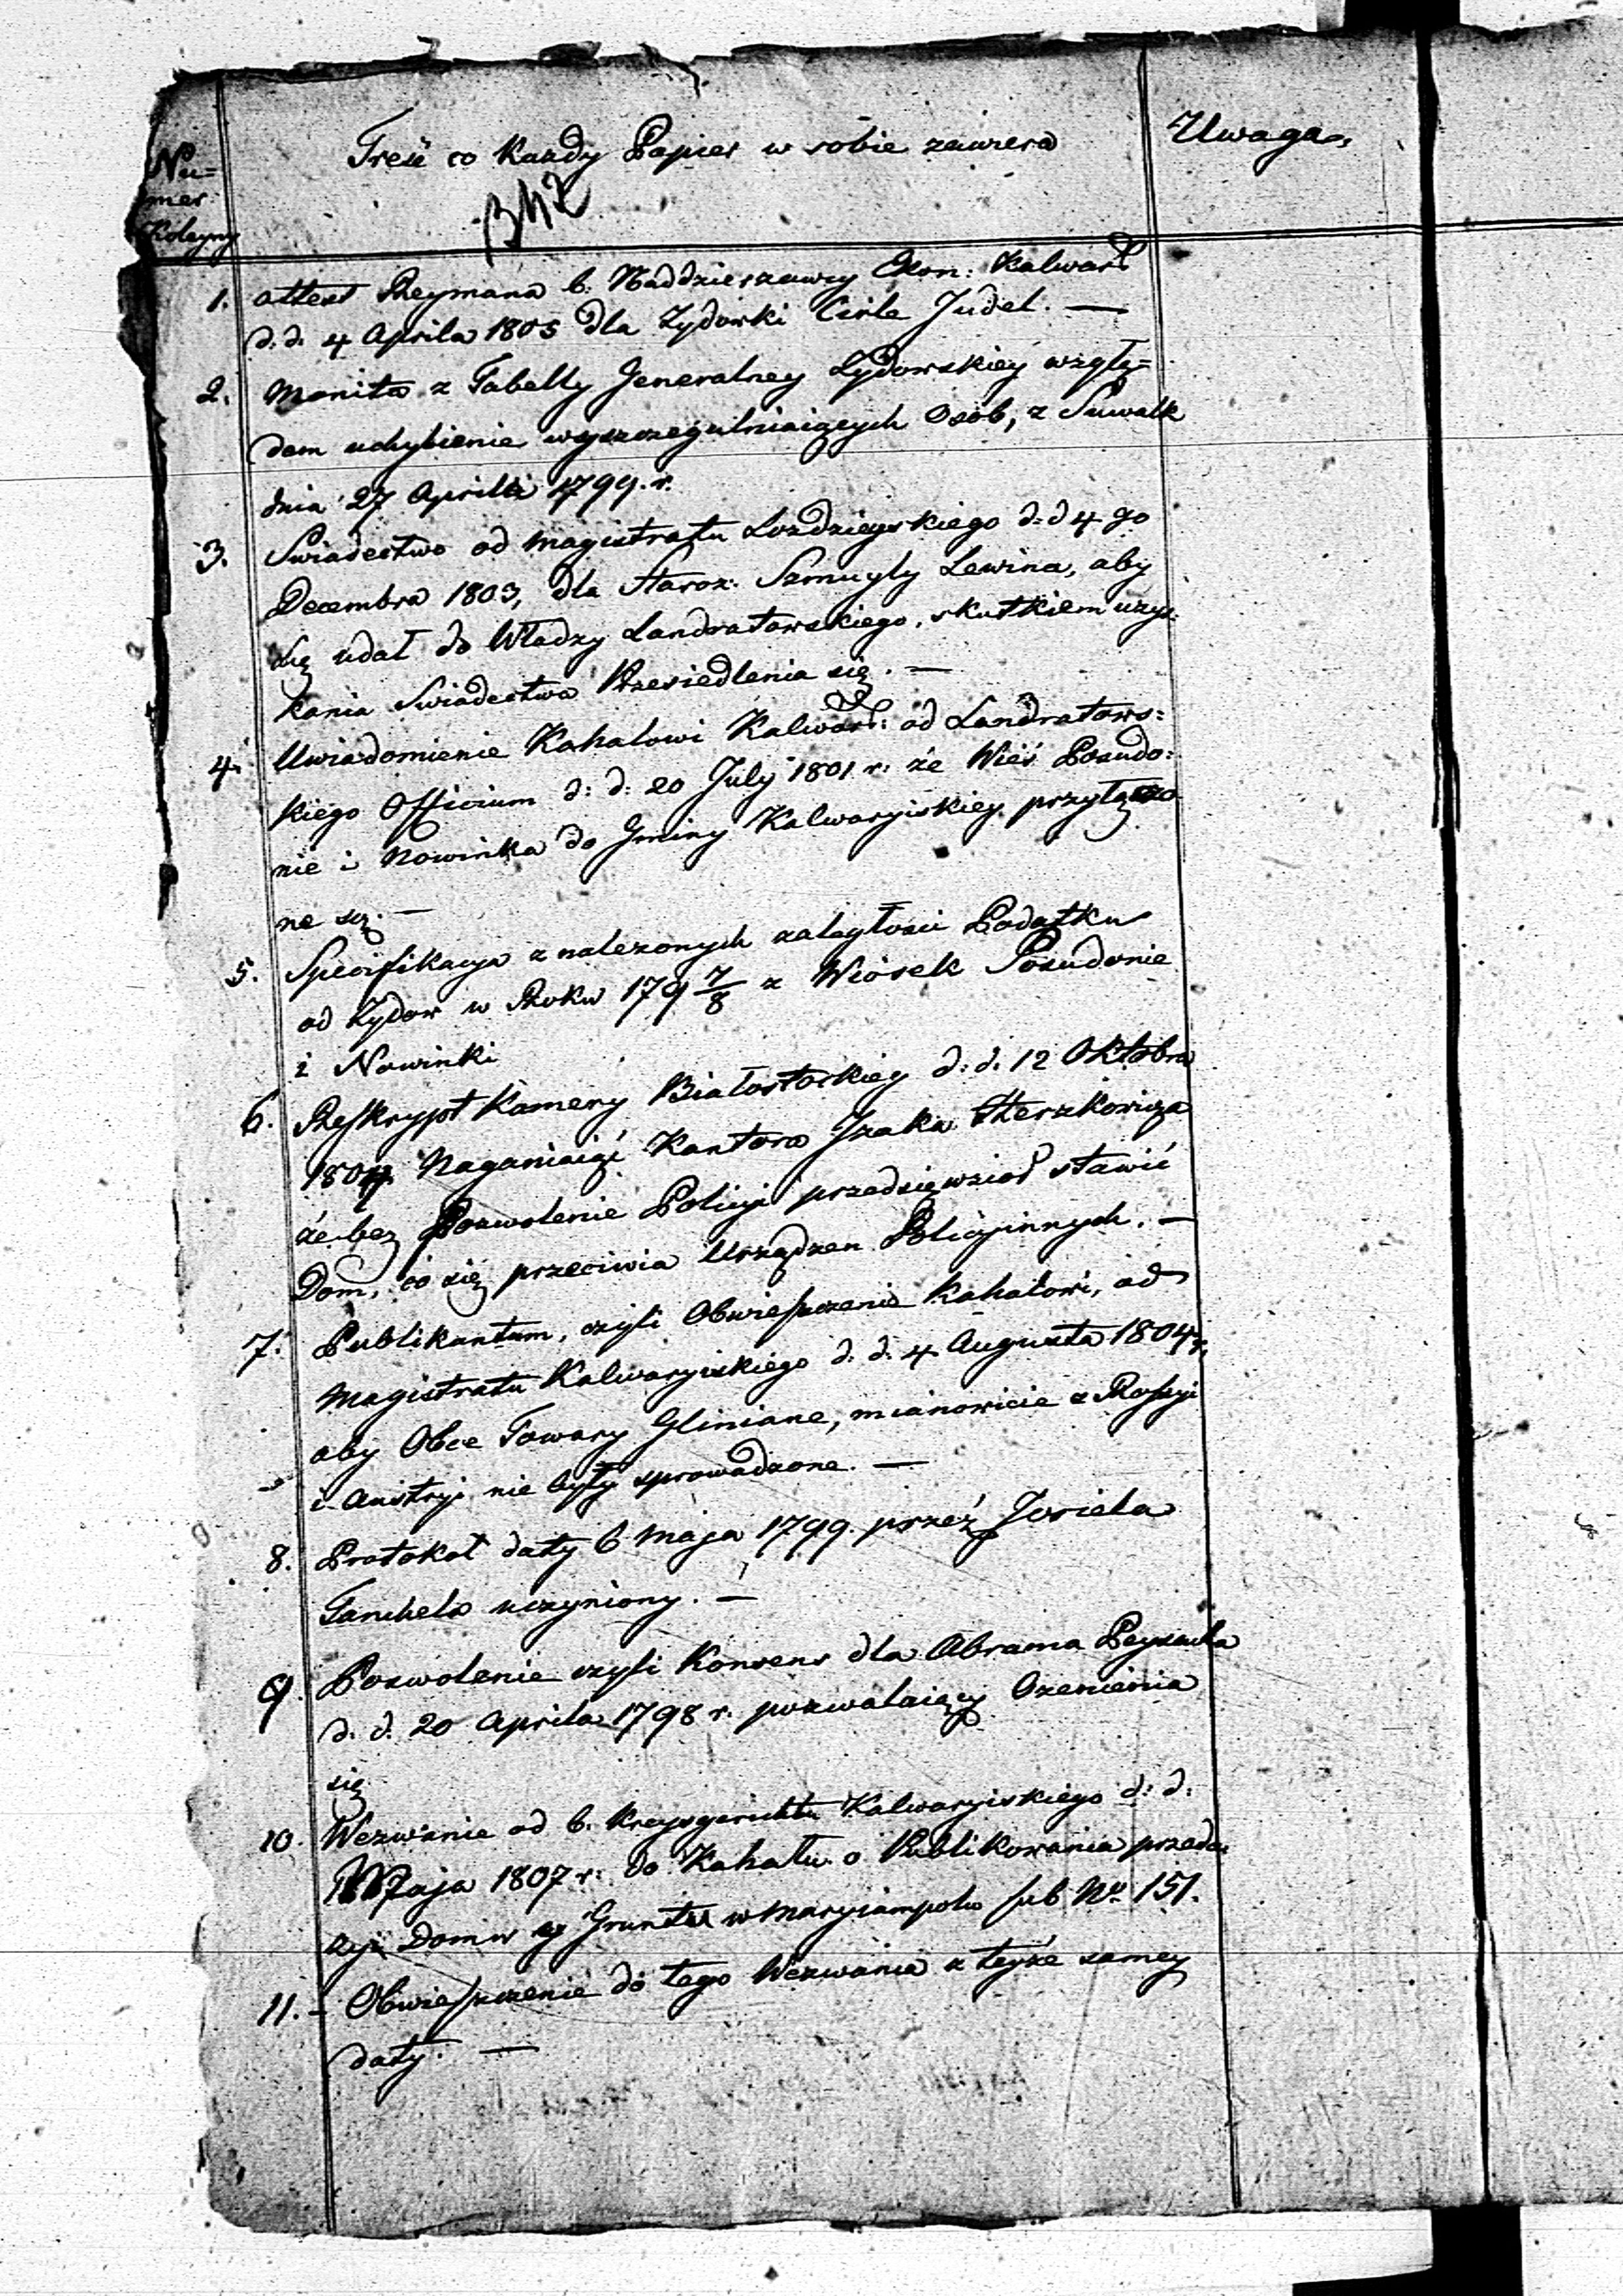 Nu=
mer
Koleyny
Treść co Każdy Papier w sobie zawiera
Uwaga
342
1. Attest Reymana b. Naddzierzawcy Ekon: Kalwar:
d. d. 4 Aprila 1805 dla Zydowki Cirle Judel. —
2. Monita z Tabelly Generalney Zydowskiey wzglę=
dem uchybienie wyszczegulniaiących Osób, z Suwalk
dnia 27 Aprilis 1799. r.
3. Swiadectwo od Magistratu Łozdzieyskiego d: d 4 go
Decembra 1803, dla Staroz: Szmuyly Lewina, aby
się udał do Władzy Landratowskiego, skutkiem uzys=
kania Swiadectwa Przesiedlenia się. —
4. Uwiadomienie Kahałowi Kalwar: od Landratows:
kiego Officium d: d: 20 July 1801 r: że Wieś Posudo:
nie i Nowinka do Gminy Kalwaryiskiey przyłączo
ne są. —
5. Specifikacya znalezonych zaległości Podatku
od Zydow w Roku 179 7/8 z Wiosek Posudonie
i Nowinki
6. Reskrypt Kamery Białostockiey d: d. 12 Oktobra
1804 Naganiaiąć Kantora Izaka Herszkowicza
że bez Pozwolenie Policyi przedsięwzioł stawić
Dom, co się przeciwia Urządzen Policyinnych. —
7. Publikantum, czyli Obwieszczenie Kahałowi, od
Magistratu Kalwaryiskiego d. d. 4 Augusta 1804 r.
aby Obce Towary Gliniane, mianowicie z Rossyi
i Austryi nie były sprowadzone. —
8. Protokoł daty 6 Maja 1799. przéz Josiela
Tanchela uczyniony. —
9. Pozwolenie czyli Konsens dla Abrama Peysacha
d. d. 20 Aprila 1798 r. pozwalaiący Ozenienia
się
10. Wezwanie od b. Kreysgerichtu Kalwaryiskiego d: d:
Maja 1807 r: do Kahału o Publikowania przeda=
zyi Domu Gruntu w Maryiampolu sub No 151.
11. - Obwieszczenie do tego Wezwania z teyże samey
daty. —